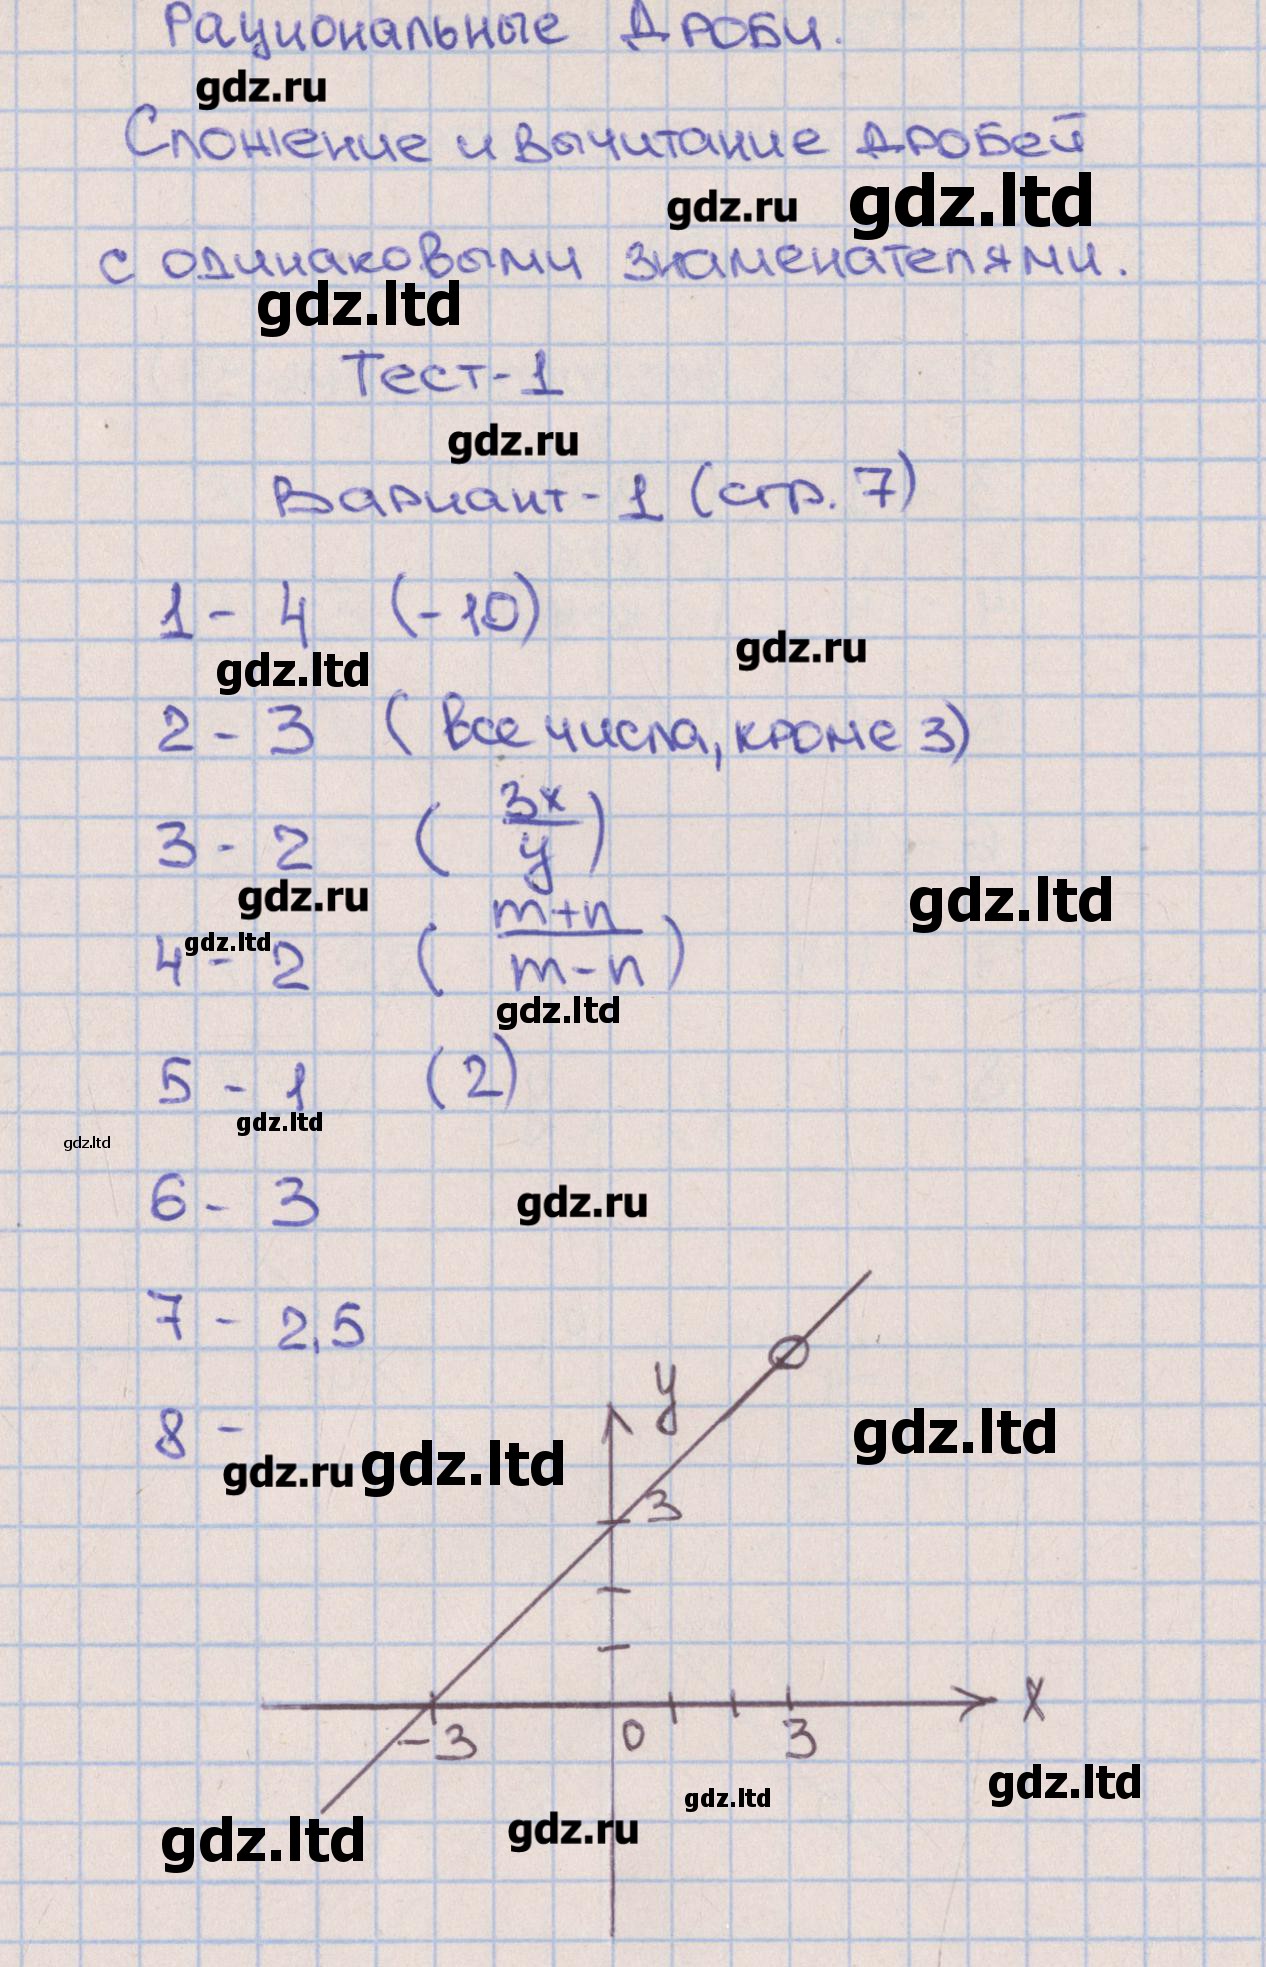 Рациональные дроби.
gdz.ru
Сложение и вычитание дробей
gdz.ru gdz.ltd
с одинаковыми знаменателями.
gdz.ltd
Тест-1
gdz.ru
Вариант-1 (стр. 7)
1 - 4 (-10)
gdz.ltd gdz.ru
2 - 3 (все числа, кроме 3)
3 - 2 (3x/y)
gdz.ru gdz.ltd
gdz.ltd
4 - 2 (m+n/m-n)
gdz.ltd
5 - 1 (2)
gdz.ltd
gdz.ltd
6 - 3
gdz.ru
7 - 2,5
y
8 -
gdz.ru gdz.ltd gdz.ltd
3
x
-3 0 3
gdz.ltd gdz.ltd
gdz.ltd gdz.ru